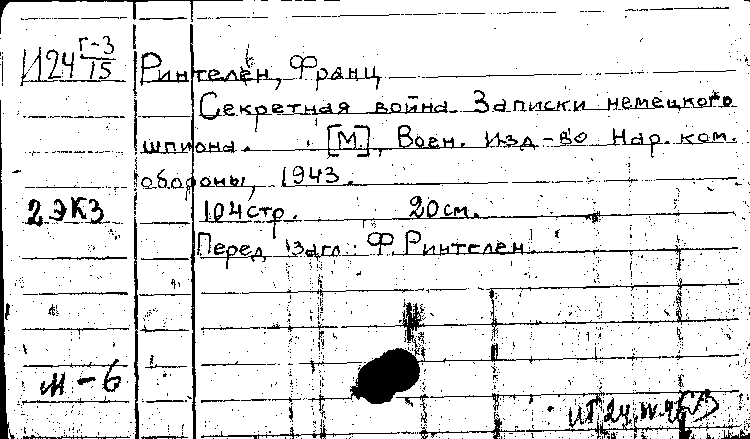 И24 Г-3/15 Ринтелен, Франц
Секретная война. Записки немецкого
шпиона. [М.], Воен. Изд-во Нар. ком.
обороны, 1943.
2 ЭКЗ 104 стр. 20 см.
Перед загл.: Ф. Ринтелен.
м - 6